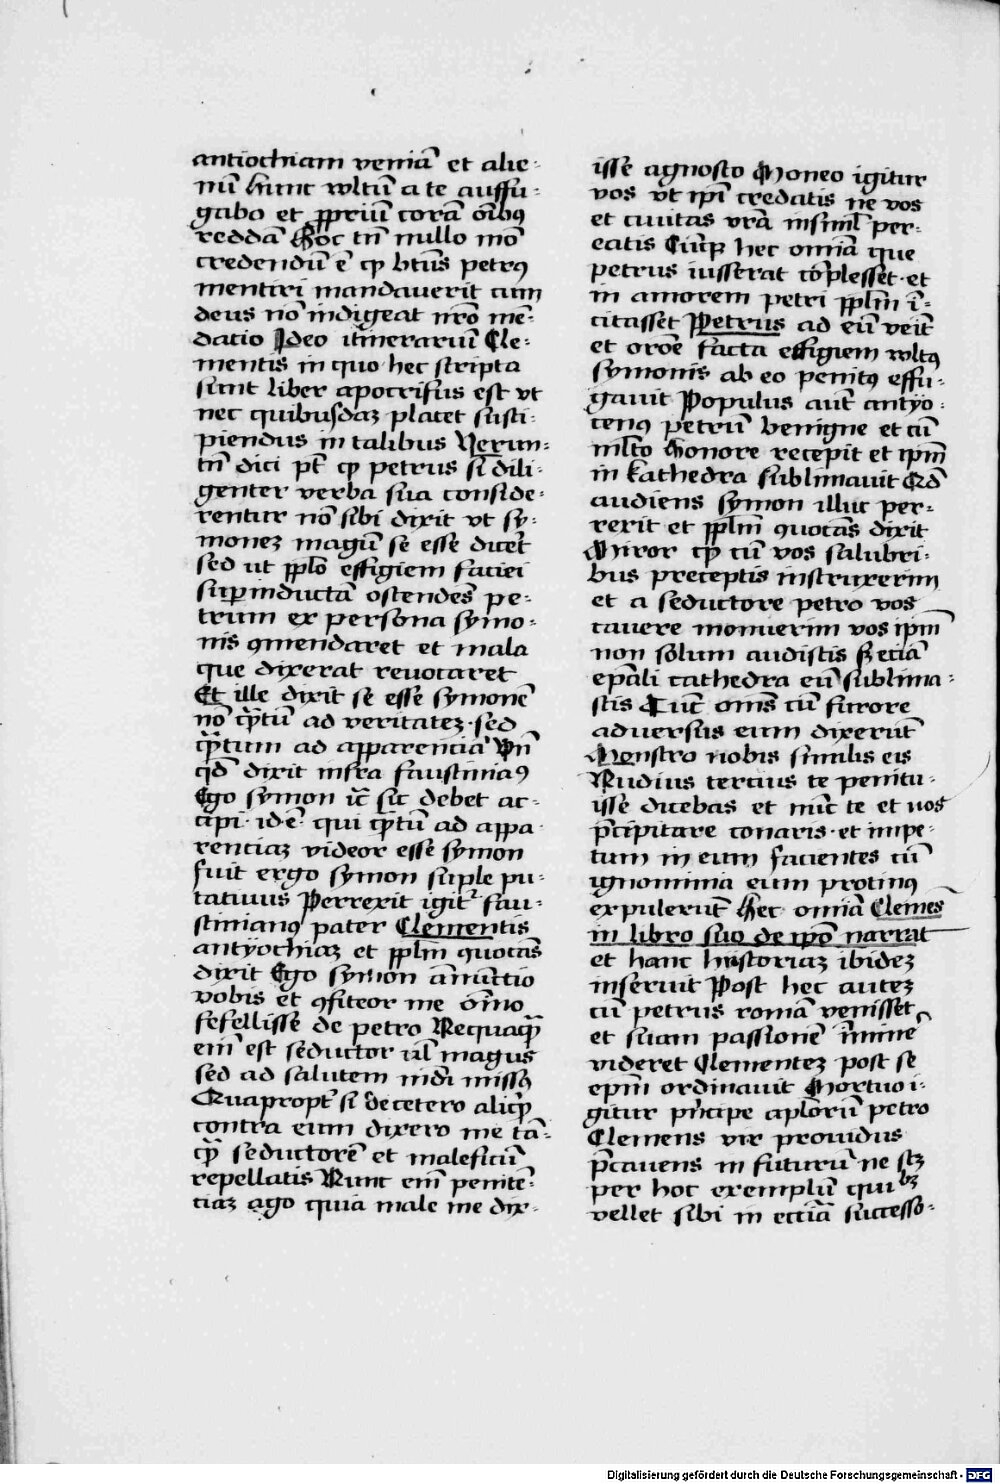 antiochiam veniā et alie-
nū hunc vultū a te auffu-
gabo et ꝓpriū corā oībꝰ
reddā Hoc tn̄ nullo mō
credendū ē ꝙ btūs petrꝰ
mentiri mandaverit cum
deus nō indigeat nr̄o mē-
datio Ideo itinerariū Cle-
mentis in quo hec scripta
sunt liber apocrifus est vt
nec quibusdaz placet susti-
piendus in talibus Verun-
tn̄ dici pt̄ ꝙ petrus si dili-
genter verba sua conside-
rentur nō sibi dixit vt sy-
monez magū se esse dicet̄
sed ut pplo effigiem faciei
suꝑinductā ostendēs pe-
trum ex persona symo-
nis ꝯmendaret et mala
que dixerat revocaret
Et ille dixit se esse symonē
nō ꝙ̄tū ad veritatez sed
ꝙ̄tum ad apparenciā Vn̄
qd̄ dixit infra faustiniaꝰ
Ego symon ic̄ sic debet ac-
cipi id ē qui ꝙ̄tū ad appa
renciaz videor esse symon
fuit ergo symon suple pu-
tativus Perrexit igit̄ fau-
stinianꝰ pater Clementis
antyochiaz et pplm̄ quocās
dixit Ego symon ānuncio
vobis et ꝯfiteor me om̄o
fefellisse de petro Nequaꝙ̄
em̄ est seductor ul̄ magus
sed ad salutem mdi missꝰ
Quapropt̄ si de cetero aliꝙ̄
contra eum dixero me tā-
ꝙ̄ seductorē et maleficū
repellatis Nunc em̄ penitē-
ciaz ago quia male me dix-
isse agnosco Moneo igitur
vos vt ipi credatis ne vos
et civitas vrā insiml̄ per-
eatis Cūqꝫ hec omīa que
petrus iusserat cōplesset et
in amorem petri pplm̄ ī-
citasset Petrus ad eū veīt
et orōe facta effigiem vultꝰ
symonis ab eo penitꝰ effu-
gavit Populus aut̄ antyo-
cenꝰ petrū benigne et cū
ml̄to honore recepit et ipm̄
in kathedra sublimavit Qd̄
audiens symon illuc per-
rexit et pplm̄ quocās dixit
Miror ꝙ cū vos salubri-
bus preceptis instruxerim
et a seductore petro vos
cavere monuerim vos ipm̄
non solum audistis sꝫ eciā
ep̄ali cathedra eū sublima-
stis Tūc om̄s cū furore
adversus eum dixerūt
Monstro nobis similis eis
Nudius tercius te penitu-
isse dicebas et nūc te et nos
p̄cipitare conaris et impe-
tum in eum facientes cū
ignominia eum protinꝰ
expulerūt Hec omīa Clemēs
in libro suo de ipō narrat
et hanc historiaz ibidez
inseruit Post hec autez
cū petrus romā venisset
et suam passionē īminē
videret Clementez post se
ep̄m ordinavit Mortuo i-
gitur pn̄cipe ap̄lorū petro
Clemens vir providus
p̄cavens in futurū ne
per hoc exemplū
vellet sibi in ecciā successo-
Digitalisierung gefördert durch die Deutsche Forschungsgemeinschaft - DFG